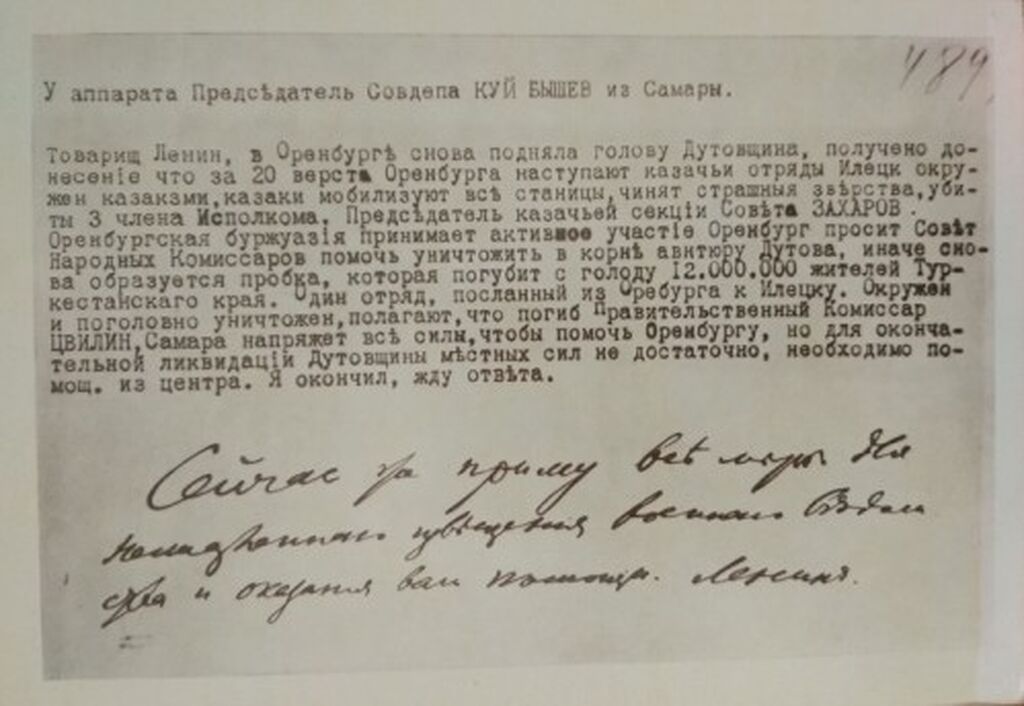 489
У аппарата Предсѣдатель Совдепа КУЙ БЫШЕВ из Самары.
Товарищ Ленин, в Оренбургѣ снова подняла голову Дутовщина, получено до-
несеніе что за 20 верста Оренбурга наступают казачьи отряды Илецк окру-
жен казакзми,казаки мобилизуют всѣ станицы,чинят страшныя звѣрства,уби-
ты 3 члена Исполкома, Предсѣдатель казачьей секціи Совѣта ЗАХАРОВ.
Оренбургская буржуазія принимает активное участіе Оренбург просит Совѣт
Народных Комиссаров помочь уничтожить в корнѣ авнтюру Дутова, иначе сно-
ва образуется пробка, которая погубит с голоду 12.000.000 жителей Тур-
кестанскаго края. Один отряд, посланный из Оребурга к Илецку. Окружен
и поголовно уничтожен,полагают,что погиб Правительственный Комиссар
ЦВИЛИН,Самара напряжет всѣ силы,чтобы помочь Оренбургу, но для оконча-
тельной ликвидацій Дутовщины мѣстных сил не достаточно, необходимо по-
мощ. из центра. Я окончил, жду отвѣта.
Сейчас же приму всѣ мѣры для
немедленнаго извѣщения военнаго Вѣдом
ства и оказания вам помощи. Ленинъ.